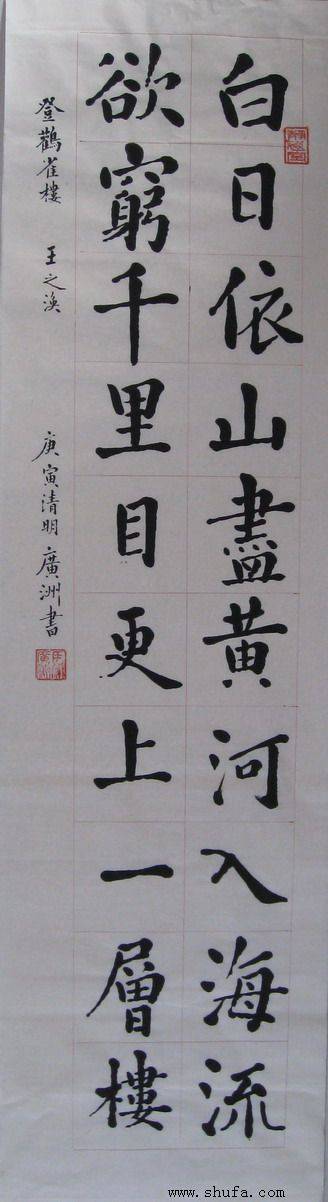 白日依山盡黄河入海流
欲窮千里目更上一層樓
登鸛雀樓 王之渙
庚寅清明廣洲書
www.shufa.com